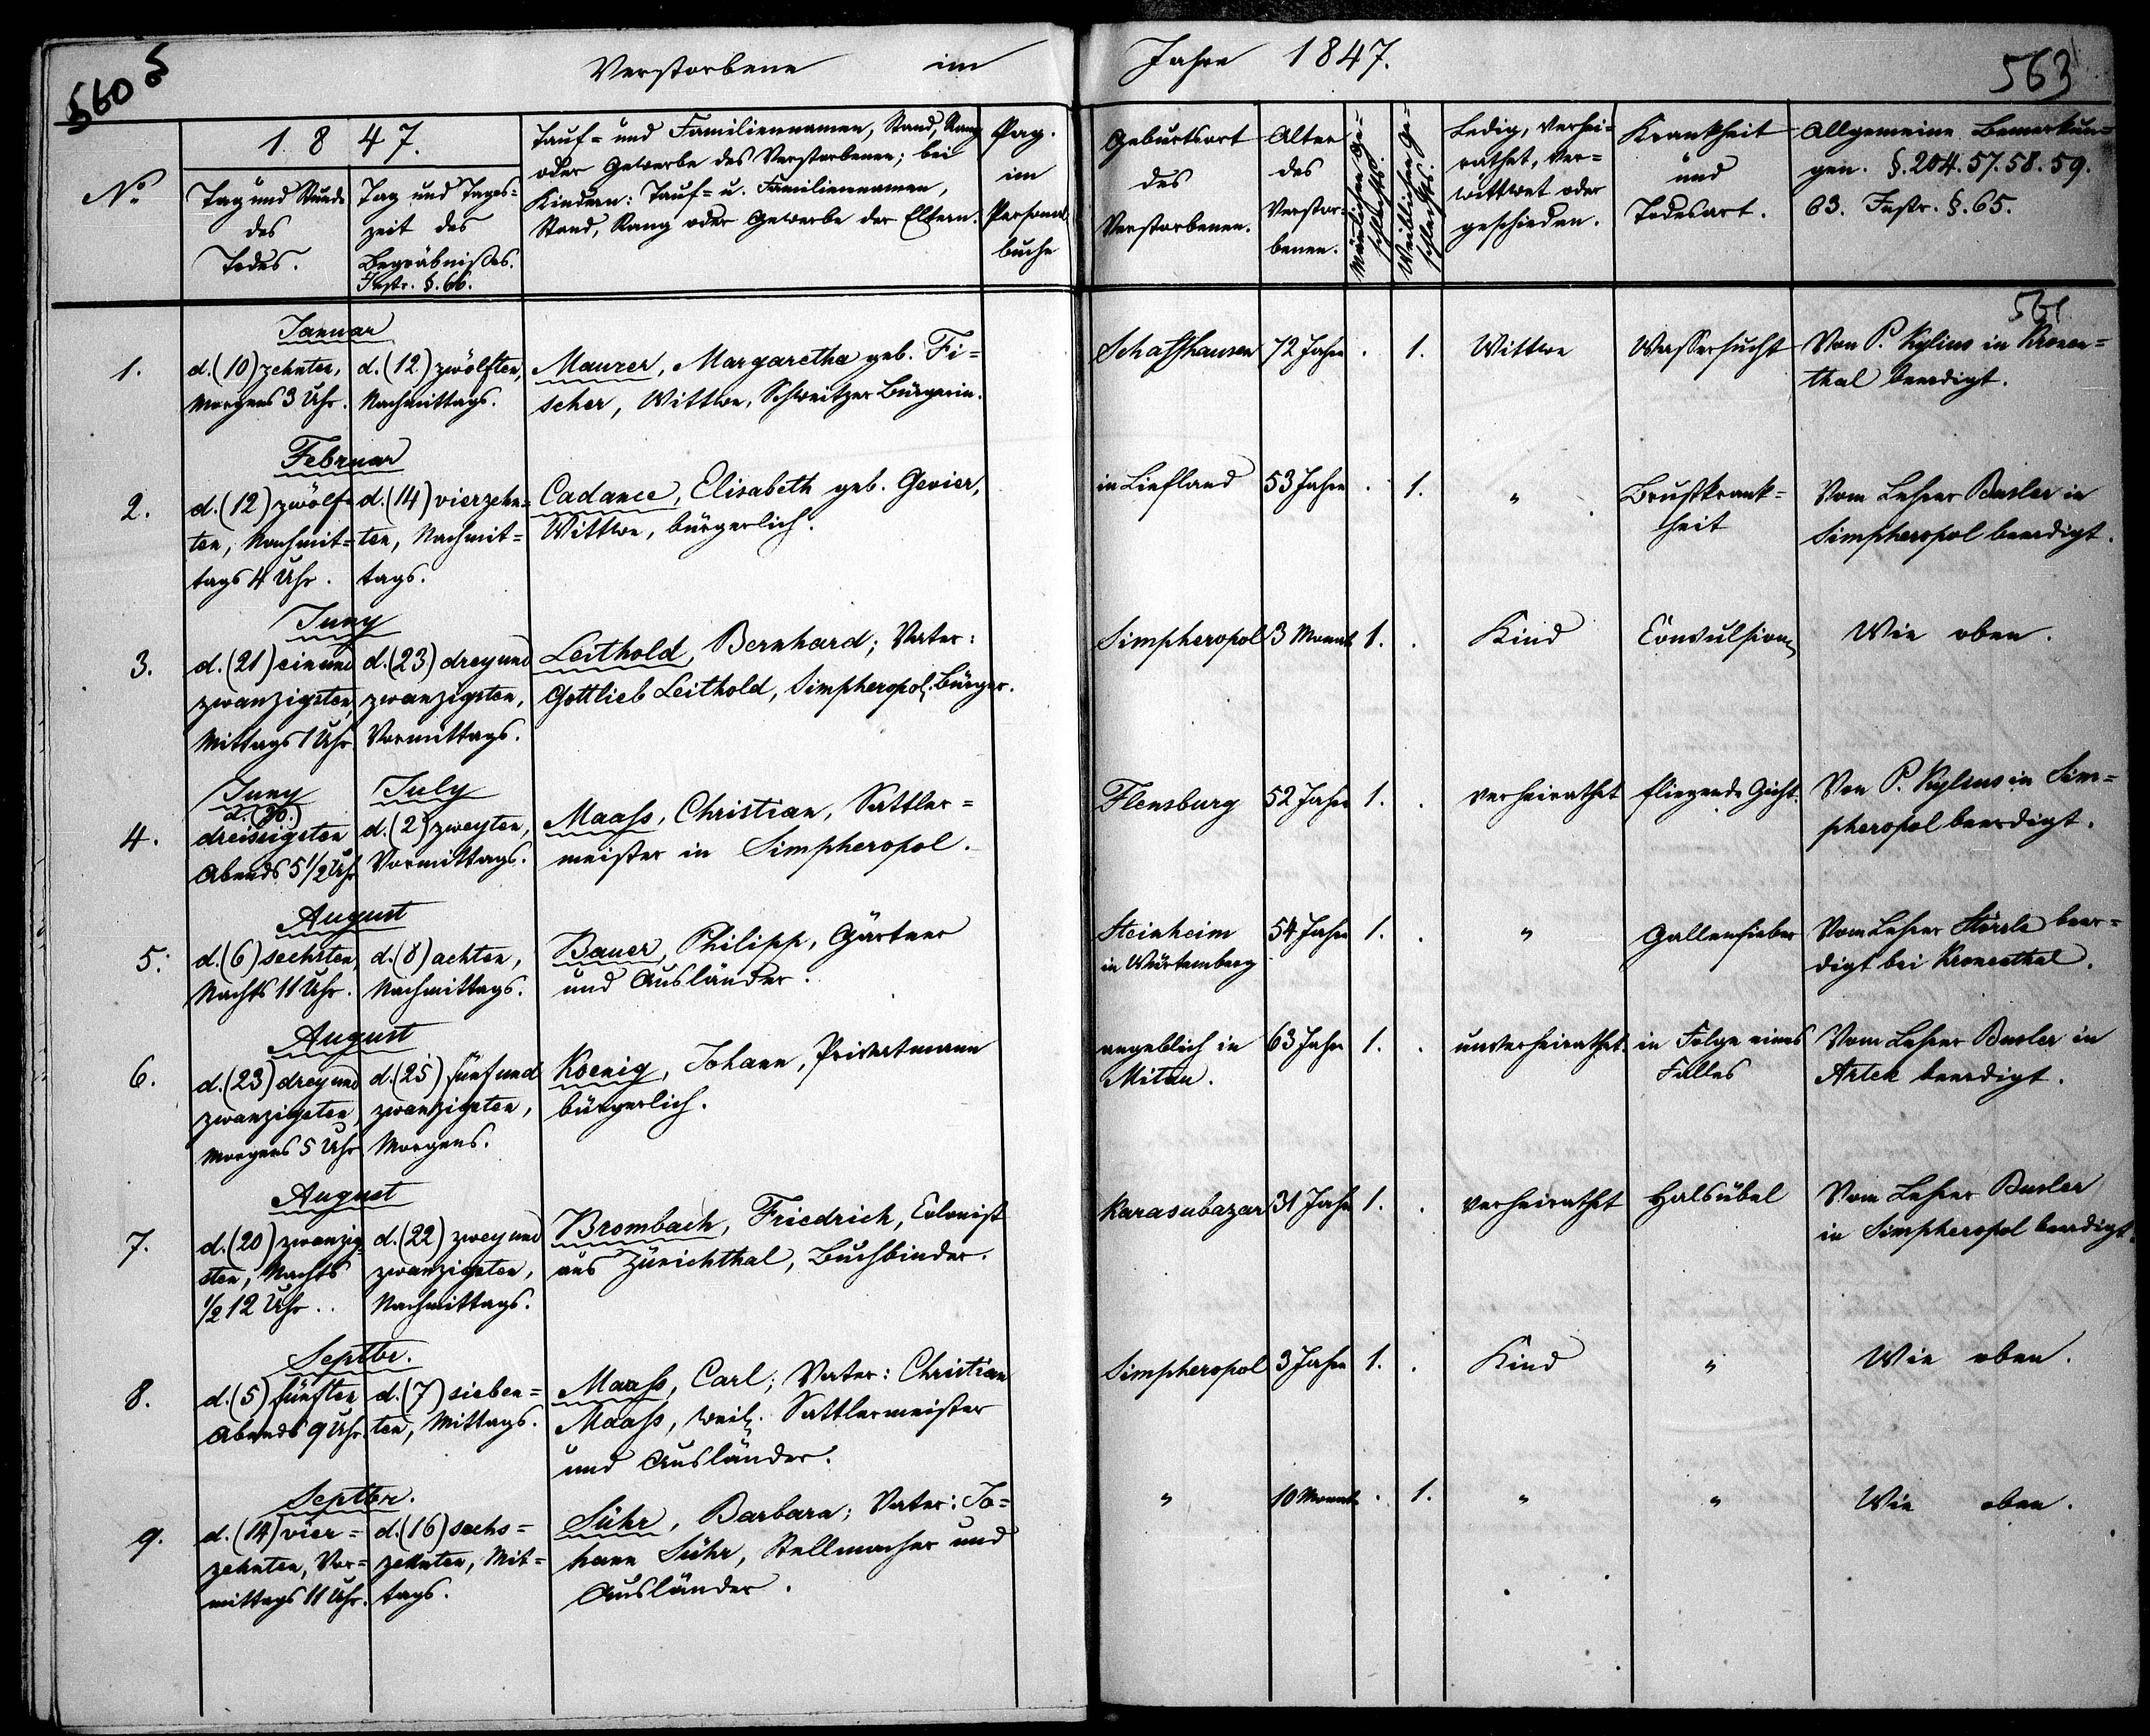 560
Verstorbene im Jahre 1847.
563
No.
1847.
Tag und Stunde
des
Todes.
Tag und Tages-
zeit des
Begräbnißes.
Instr. §. 66.
Tauf- und Familiennamen, Stand, Rang
oder Gewerbe des Verstorbenen; bei
Kindern: Tauf- u. Familiennamen,
Stand, Rang oder Gewerbe der Eltern.
Pag.
im
Personal
buche
Geburtsort
des
Verstorbenen.
Alter
des
Verstor-
benen.
Mänlichen Ge-
schlechts.
Weiblichen Ge-
schlechts.
Ledig, verhei-
rathet, ver-
wittwet oder
geschieden.
Krankheit
und
Todesart.
Allgemeine Bemerkun-
gen. §. 204. 57. 58. 59.
63. Instr. §. 65.
561
1.
Januar
d. (10) zehnten,
Morgens 3 Uhr.
d. (12) zwölften,
Nachmittags.
Maurer, Margaretha geb. Fi-
scher, Wittwe, Schweitzer Bürgerin.
Schaffhausen
72 Jahre
.
1.
Wittwe
Wassersucht
Von P. Kylius in Kronen-
thal beerdigt.
2.
Februar
d. (12) zwölf-
ten, Nachmit-
tags 4 Uhr.
d. (14) vierzehn-
ten, Nachmit-
tags.
Cadance, Elisabeth geb. Gevier,
Wittwe, bürgerlich.
in Liefland
53 Jahre
.
1.
"
Brustkrank-
heit
Vom Lehrer Busler in
Simpheropol beerdigt.
3.
Juny
d. (21) einund
zwanzigsten,
Mittags 1 Uhr.
d. (23) dreyund
zwanzigsten,
Vormittags.
Leithold, Bernhard; Vater:
Gottlieb Leithold, Simpheropol. Bürger.
Simpheropol
3 Monate
1.
.
Kind
Convulsion
Wie oben.
4.
Juny
d. (30.)
dreissigsten
Abends 5 1/2 Uhr
July
d. (2) zweyten,
Vormittags.
Maass, Christian, Sattler-
meister in Simpheropol.
Flensburg
52 Jahre
1.
.
verheirathet
fliegende Gicht.
Von P. Kylius in Sim-
pheropol beerdigt.
5.
August
d. (6) sechsten,
Nachts 11 Uhr.
d. (8) achten,
Nachmittags.
Bauer, Philipp, Gärtner
und Ausländer.
Steinheim
in Würtemberg
54 Jahre
1.
.
"
Gallenfieber
Vom Lehrer beer-
digt bei Kronenthal.
6.
August
d. (23) dreyund
zwanzigsten,
Morgens 5 Uhr
d. (25) fünfund
zwanzigsten,
Morgens.
Koenig, Johann, Privatmann
bürgerlich.
angeblich in
Mitau.
63 Jahre
1.
.
unverheirathet.
in Folge eines
Falles
Vom Lehrer Busler in
Artek beerdigt.
7.
August
d. (20) zwanzig-
sten, Nachts
1/2 12 Uhr..
d. (22) zweyund
zwanzigsten,
Nachmittags.
Brombach, Friedrich, Colonist
aus Zürichthal, Buchbinder.
Karasubazar
31 Jahre
1.
.
verheirathet
Halsübel
Vom Lehrer Busler
in Simpheropol beerdigt.
8.
Septbr.
d. (5) fünften
Abends 9 Uhr.
d. (7) sieben-
ten, Mittags.
Maass, Carl; Vater: Christian
Maass, weil. Sattlermeister
und Ausländer.
Simpheropol
3 Jahre
1.
.
Kind
"
Wie oben.
9.
Septbr.
d. (14) vier-
zehnten, Vor-
mittags 11 Uhr.
d. (16) sechs-
zehnten, Mit-
tags.
Sühr, Barbara; Vater: Jo-
hann Sühr, Stellmacher und
Ausländer.
"
10 Monate
.
1.
"
"
Wie oben.